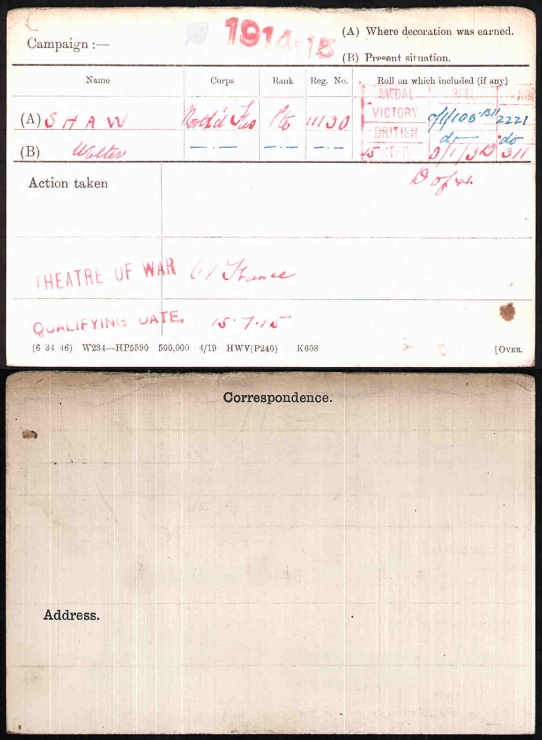 Campaign :— 1914-18
(A) Where decoration was earned.
(B) Present situation.
Name Corps Rank Reg. No. Roll on which included (if any)
MEDAL ROLL PAGE
(A) SHAW North'd Fus Pte 11130 VICTORY O/1/105 B11 2221
BRITISH do do
(B) Walter —.— —.— —.— 15 STAR O/1/3 B 311
Action taken D of W.
THEATRE OF WAR (1) France
QUALIFYING DATE. 15.7.15
(6 34 46) W234—HP5590 500,000 4/19 HWV(P240) K608 [OVER.
Correspondence.
Address.